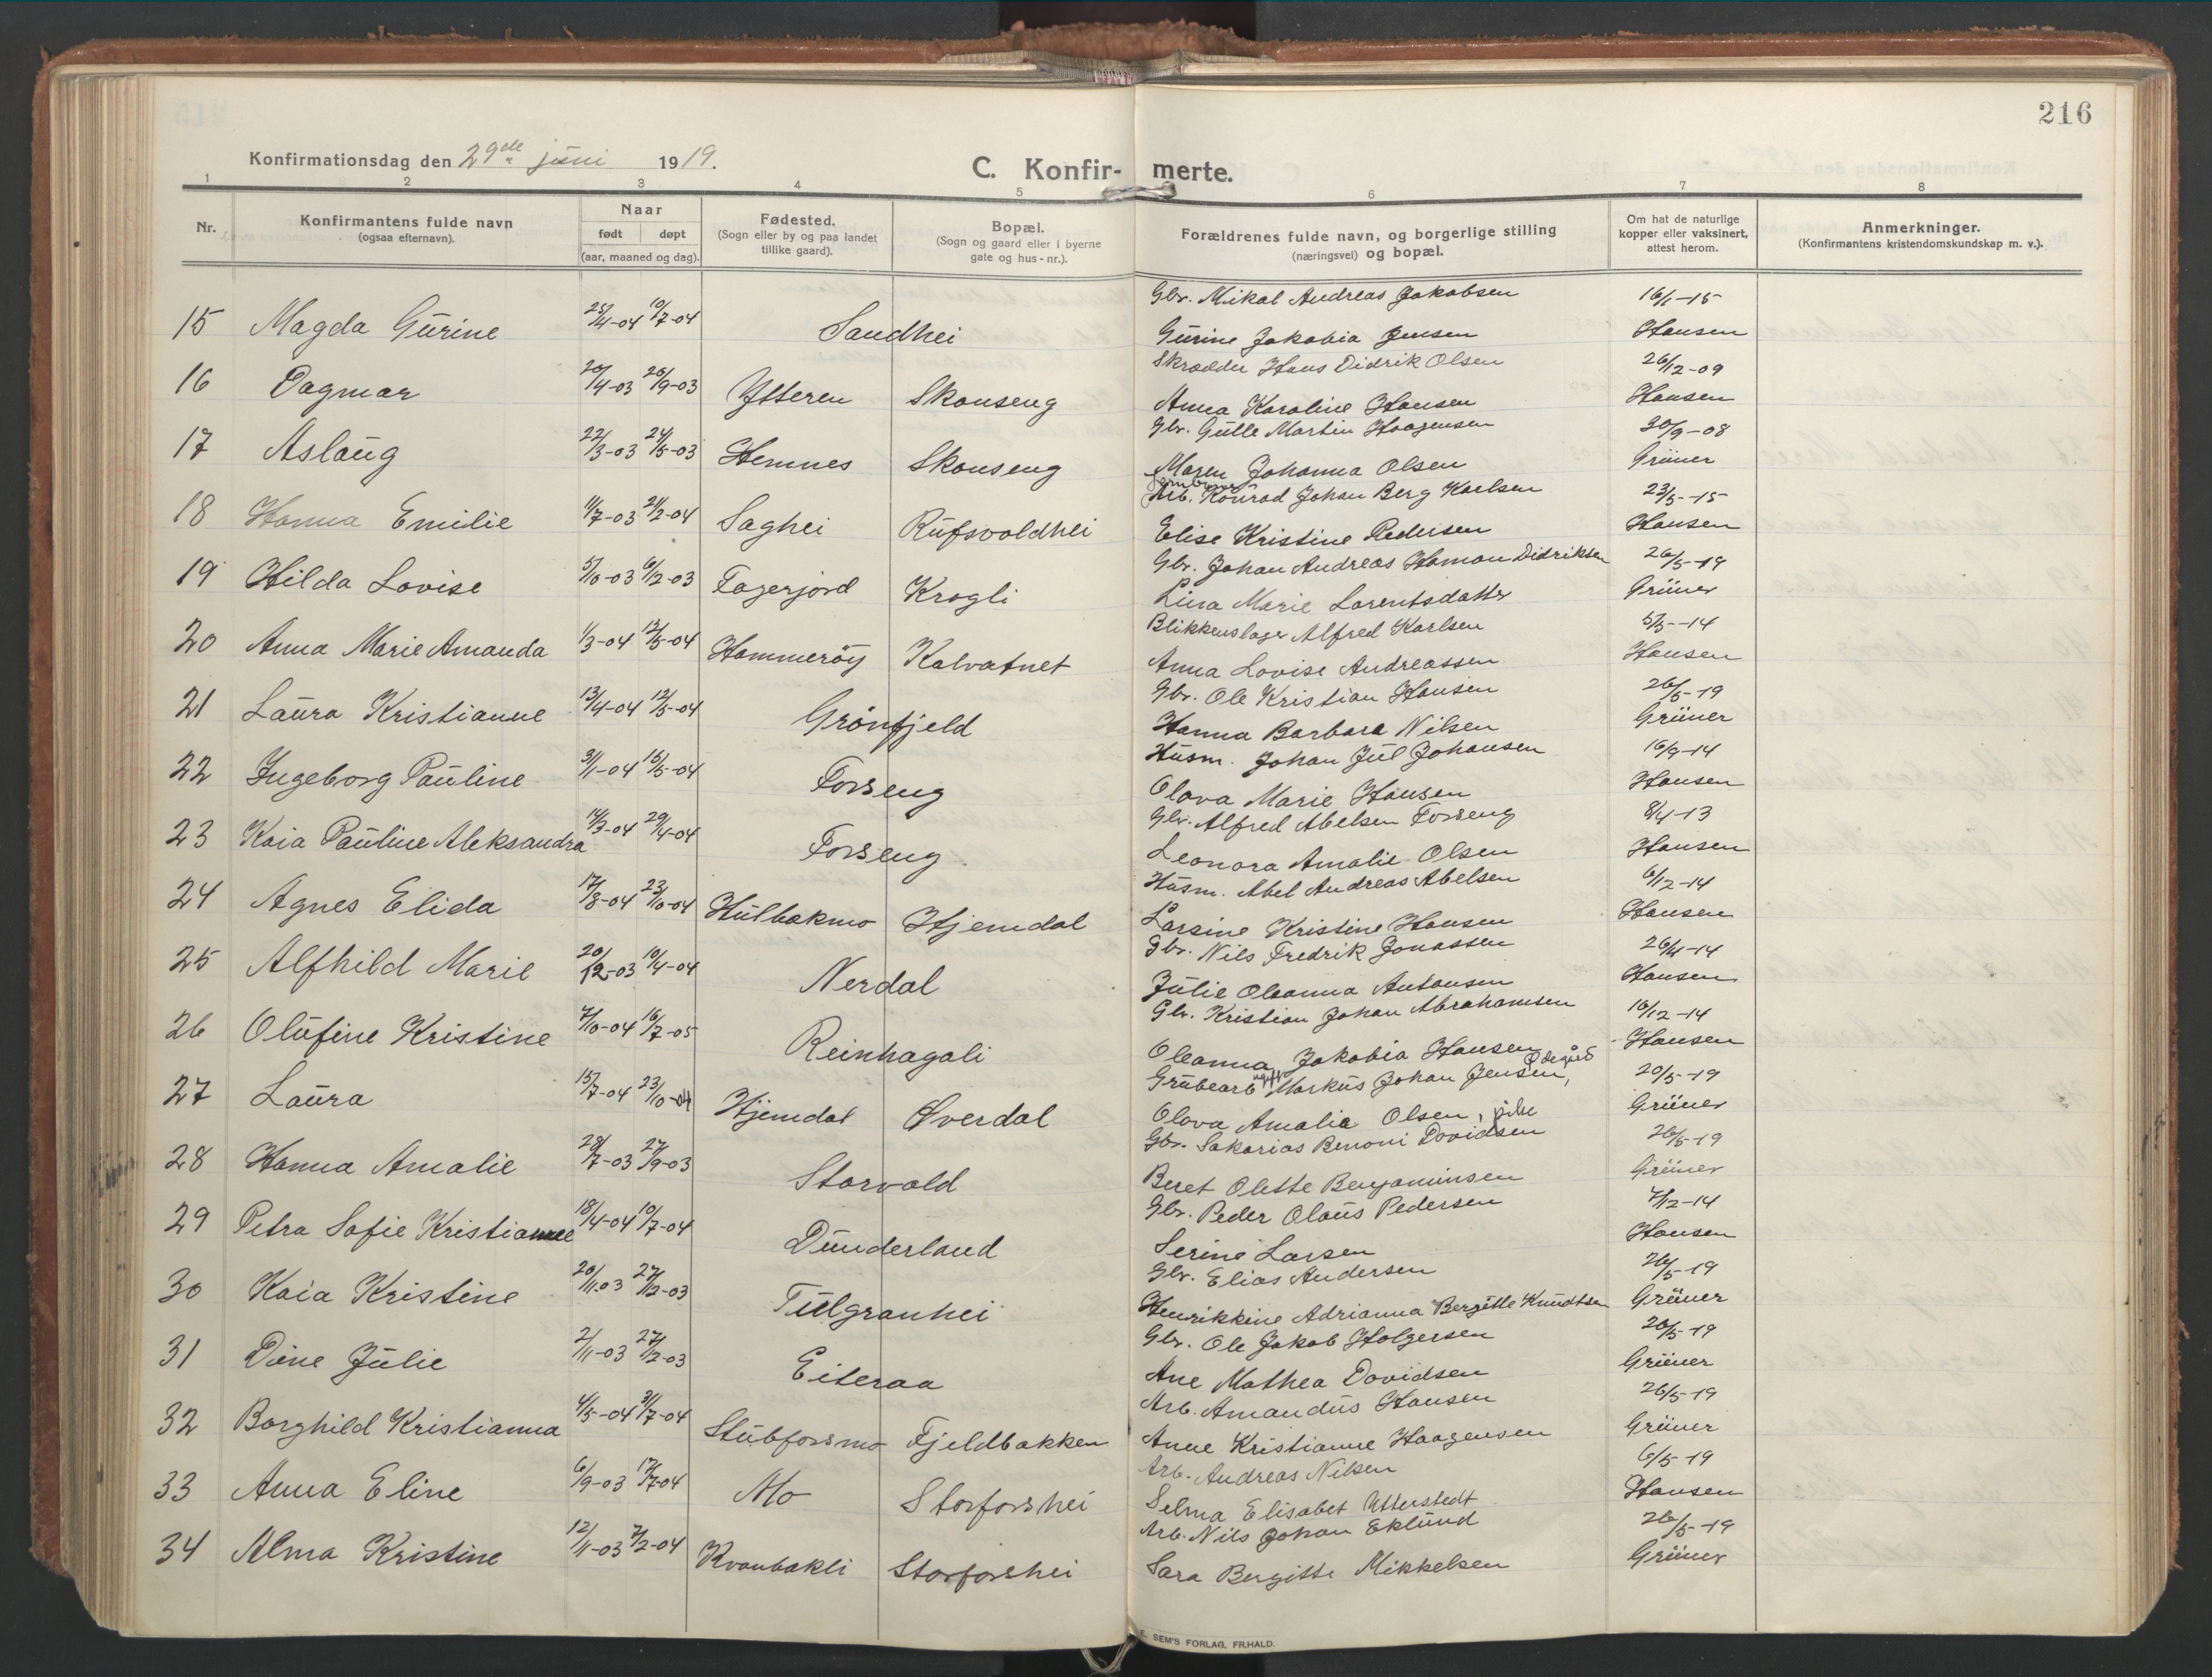 216
Konfirmationsdag den 29de juni 1919.
C. Konfir- merte.
1 2 3 4 5 6 7 8
Nr.
Konfirmantens fulde navn
(ogsaa efternavn).
Naar
født døpt
(aar, maaned og dag).
Fødested.
(Sogn eller by og paa landet
tillike gaard).
Bopæl.
(Sogn og gaard eller i byerne
gate og hus-nr.).
Forældrenes fulde navn, og borgerlige stilling
(næringsvei) og bopæl.
Om hat de naturlige
kopper eller vaksinert,
attest herom.
Anmerkninger.
(Konfirmantens kristendomskundskap m. v.).
Gbr. Mikal Andreas Jakobsen 16/1-15
15 Magda Gurine 25/4-04 10/7-04 Sandhei
Gurine Jakobia Jensen Hansen
Skrædder Hans Didrik Olsen 26/12-09
16 Dagmar 20/4-03 20/9-03 Ytteren Skonseng
Anna Karoline Hansen Hansen
Gbr. Gulle Martin Haagensen 30/9-08
17 Aslaug 22/3-03 24/5-03 Hemnes Skonseng
Maren Johanna Olsen Grüner
Arb. Konrad Johan Berg Karlsen 23/5-15
18 Hanna Emilie 11/7-03 21/2-04 Saghei Rufsvoldhei
Elise Kristine Pedersen Hansen
Gbr. Johan Andreas Hamon Didriksen 26/5-19
19 Hilda Lovise 5/10-03 6/12-03 Fagerjord Krogli
Lina Marie Lorentsdatter Grüner
Blikkenslager Alfred Karlsen 5/5-14
20 Anna Marie Amanda 1/3-04 12/5-04 Hammerøy Kalvatnet
Anna Lovise Andreassen Hansen
Gbr. Ole Kristian Hansen 26/5-19
21 Laura Kristianne 13/4-04 12/5-04 Grønfjeld
Hanna Barbara Nilsen Grüner
Husm. Johan Jul Johansen 16/9-14
22 Ingeborg Pauline 31/1-04 15/5-04 Forseng
Olava Marie Hansen Hansen
Gbr. Alfred Abelsen Forseng 8/4-13
23 Kaia Pauline Aleksandra 14/3-04 29/4-04 Forseng
Leonora Amalie Olsen Hansen
Husm. Abel Andreas Abelsen 6/12-14
24 Agnes Elida 17/8-04 23/10-04 Hulbakmo Hjemdal
Larsine Kristine Hansen Hansen
Gbr. Nils Fredrik Jonassen 26/4-14
25 Alfhild Marie 20/12-03 10/4-04 Nerdal
Julie Oleanna Antonsen Hansen
Gbr. Kristian Johan Abrahamsen 16/12-14
26 Olufine Kristine 7/10-04 16/7-05 Reinhagali
Oleanna Jakobia Hansen Hansen
Grubearb. ugift Markus Johan Jensen, Ødegård 20/5-19
27 Laura 15/7-04 23/10-04 Hjemdal Øverdal
Olava Amalia Olsen, pike Grüner
Gbr. Sakarias Benoni Davidsen 26/5-19
28 Hanna Amalie 28/7-03 27/9-03 Storvold
Beret Olette Benjaminsen Grüner
Gbr. Peder Olaus Pedersen 7/12-14
29 Petra Sofie Kristianne 18/4-04 10/7-04 Dunderland
Serine Larsen Hansen
Gbr. Elias Andersen 26/5-19
30 Kaia Kristine 20/11-03 27/12-03 Tulgranhei
Henrikkine Adrianna Bergitte Knudtsen Grüner
Gbr. Ole Jakob Holgersen 26/5-19
31 Dine Julie 2/11-03 27/12-03 Eiteraa
Ane Mathea Davidsen Grüner
Arb. Amandus Hansen 26/5-19
32 Borghild Kristianna 4/5-04 31/7-04 Stubforsmo Fjeldbakken
Anne Kristianne Haagensen Grüner
Arb. Andreas Nilsen 6/5-19
33 Anna Eline 6/9-03 17/7-04 Mo Storforshei
Selma Elisabet Utterstedt Hansen
Arb. Nils Johan Eklund 26/5-19
34 Alma Kristine 12/11-03 7/2-04 Kvanbakli Storforshei
Sara Bergitte Mikkelsen Grüner
E. SEM'S FORLAG, FR.HALD.